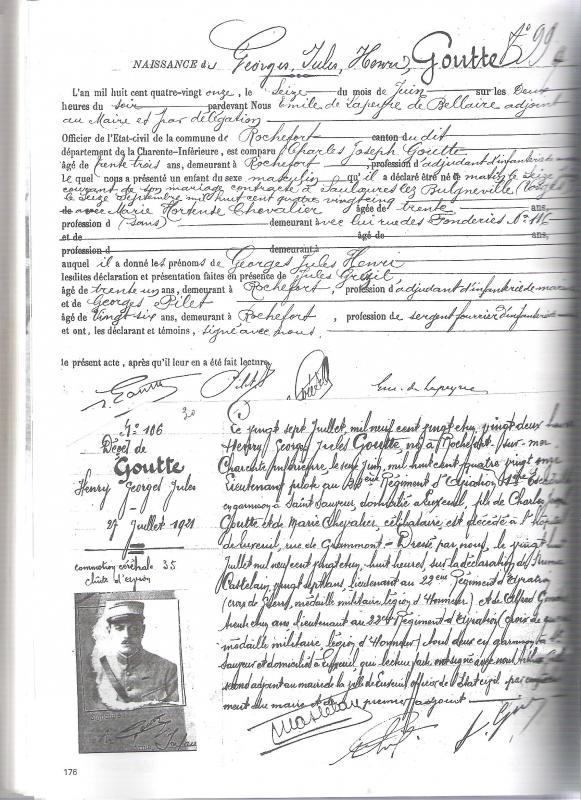 NAISSANCE de Georges, Jules, Henri, Goutte No 99
L'an mil huit cent quatre-vingt onze, le Seize du mois de Juin sur les Deux
heures du soir pardevant Nous Emile de Lapeyre de Bellaire adjoint
au Maire et par délégation
Officier de l'Etat-civil de la commune de Rochefort canton du dit
département de la Charente-Inférieure, est comparu Charles Joseph Goutte
âgé de trente trois ans, demeurant à Rochefort, profession d'adjudant d'infanterie
Le quel nous a présenté un enfant du sexe masculin qu'il a déclaré être né ce matin le Seize
courant de son mariage contracté à Saulxures lez Bulgneville (Vosges)
le Seize Septembre mil huit cent quatre vingt
de avec Marie Hortense Chevalier âgée de trente ans,
profession d (sans) demeurant avec lui rue des Fonderies No 116
et de âgé de ans,
profession d demeurant à
auquel il a donné les prénoms de Georges Jules Henri
lesdites déclaration et présentation faites en présence de Jules
âgé de trente un ans, demeurant à Rochefort, profession d'adjudant d'infanterie de marine
et de Georges Pilet
âgé de Vingt six ans, demeurant à Rochefort, profession de sergent fourrier d'infanterie
et ont, les déclarant et témoins, signé avec nous.
le présent acte, après qu'il leur en a été fait lecture
Em. de Lapeyre
No 186
Décès de
Goutte
Henry Georges Jules
27 Juillet 1921
commotion cérébrale 35
chute d'avion
Le vingt sept Juillet, mil neuf cent vingt et un, vingt deux heures
Henry Georges Jules Goutte, né à Rochefort-sur-mer
Charente Inférieure, le seize Juin, mil huit cent quatre vingt onze
Lieutenant pilote au Régiment d'Aviation
en garnison à Saint Sauveur, domicilié à Luxeuil, fils de Charles Joseph
Goutte et de Marie Chevalier, célibataire, est décédé à l'hôpital
de Luxeuil, rue de Grammont — Dressé par nous, le vingt huit
Juillet mil neuf cent vingt et un, huit heures sur la déclaration de
Mastelain, vingt sept ans, lieutenant au 22eme Régiment d'Aviation
(croix de guerre, médaille militaire, légion d'Honneur) et de Alfred
trente cinq ans lieutenant au 22eme Régiment d'Aviation (croix de guerre
médaille militaire, légion d'Honneur) tous deux en garnison à St
Sauveur et domiciliés à Luxeuil, qui lecture faite ont signé avec nous,
second adjoint au maire de la ville de Luxeuil officier de l'état civil par
ment du maire et du premier adjoint
176